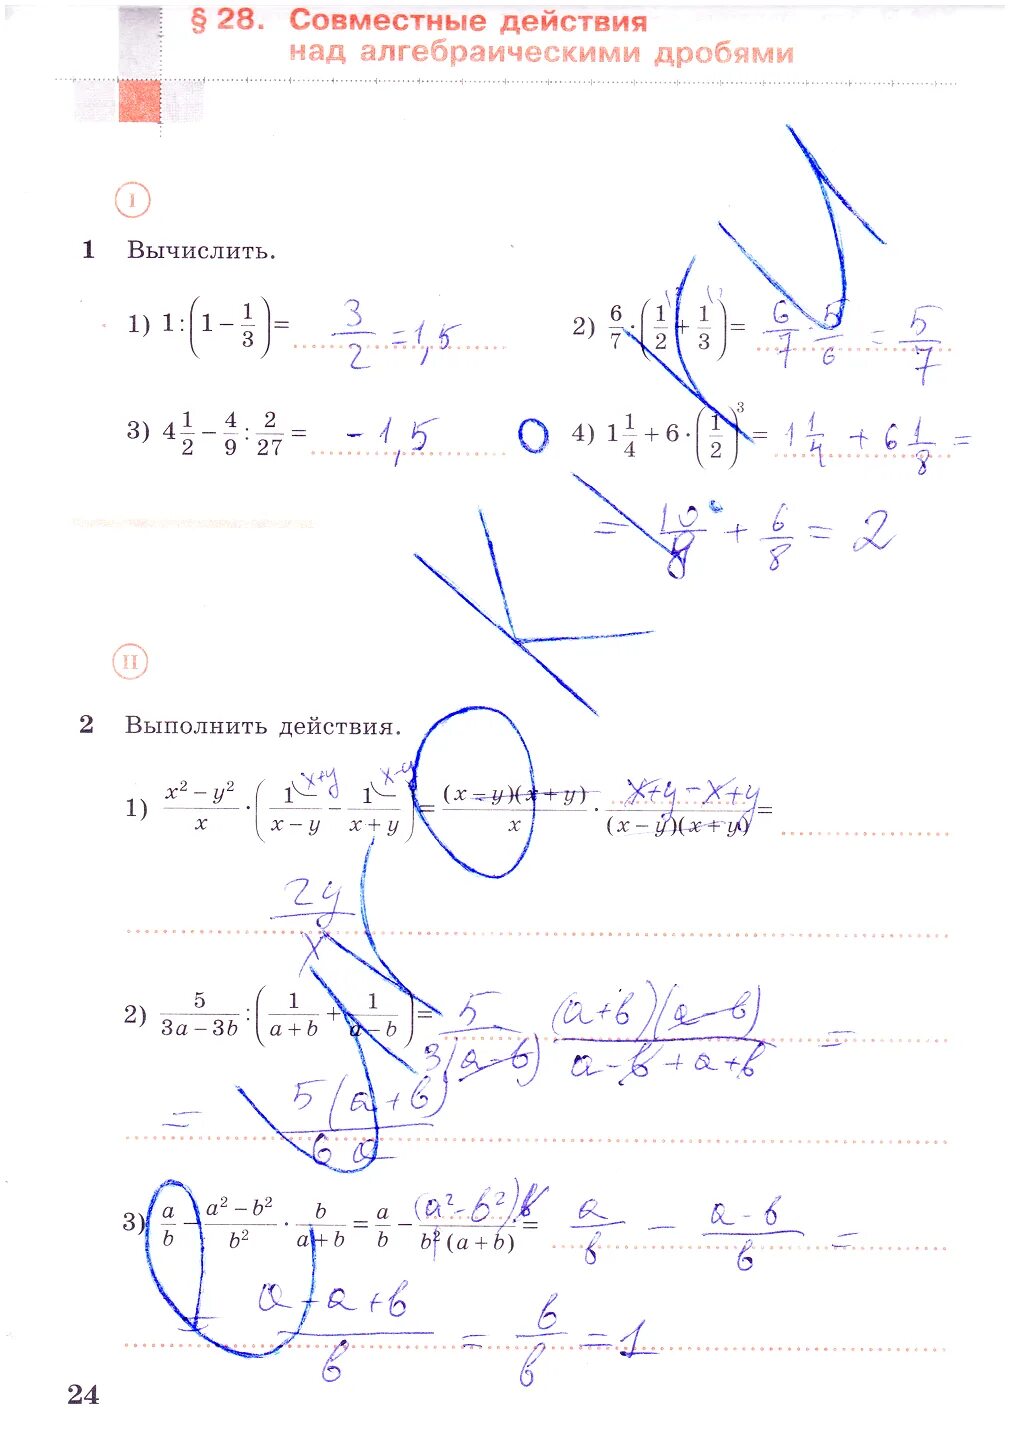 § 28. Совместные действия
над алгебраическими дробями
I
1 Вычислить.
1) 1 : (1 − 1/3) = 3/2 = 1,5
2) 6/7 · (1/2 + 1/3) = 6/7 · 5/6 = 5/7
3) 4 1/2 − 4/9 : 2/27 = − 1,5
4) 1 1/4 + 6 · (1/2)³ = 1 1/4 + 6 1/8 =
= 10/8 + 6/8 = 2
II
2 Выполнить действия.
1) (x² − y²)/x · (1/(x − y) − 1/(x + y)) = (x − y)(x + y)/x · (x+y − x+y)/((x − y)(x + y)) =
2y/x
2) 5/(3a − 3b) : (1/(a + b) + 1/(a − b)) = 5/(3(a − b)) (a+b)(a−b)/(a−b+a+b) =
= 5(a+b)/6a
3) a/b − (a² − b²)/b² · b/(a + b) = a/b − (a² − b²)b/(b² (a + b)) = a/b − (a−b)/b =
= (a−a+b)/b = b/b = 1
24